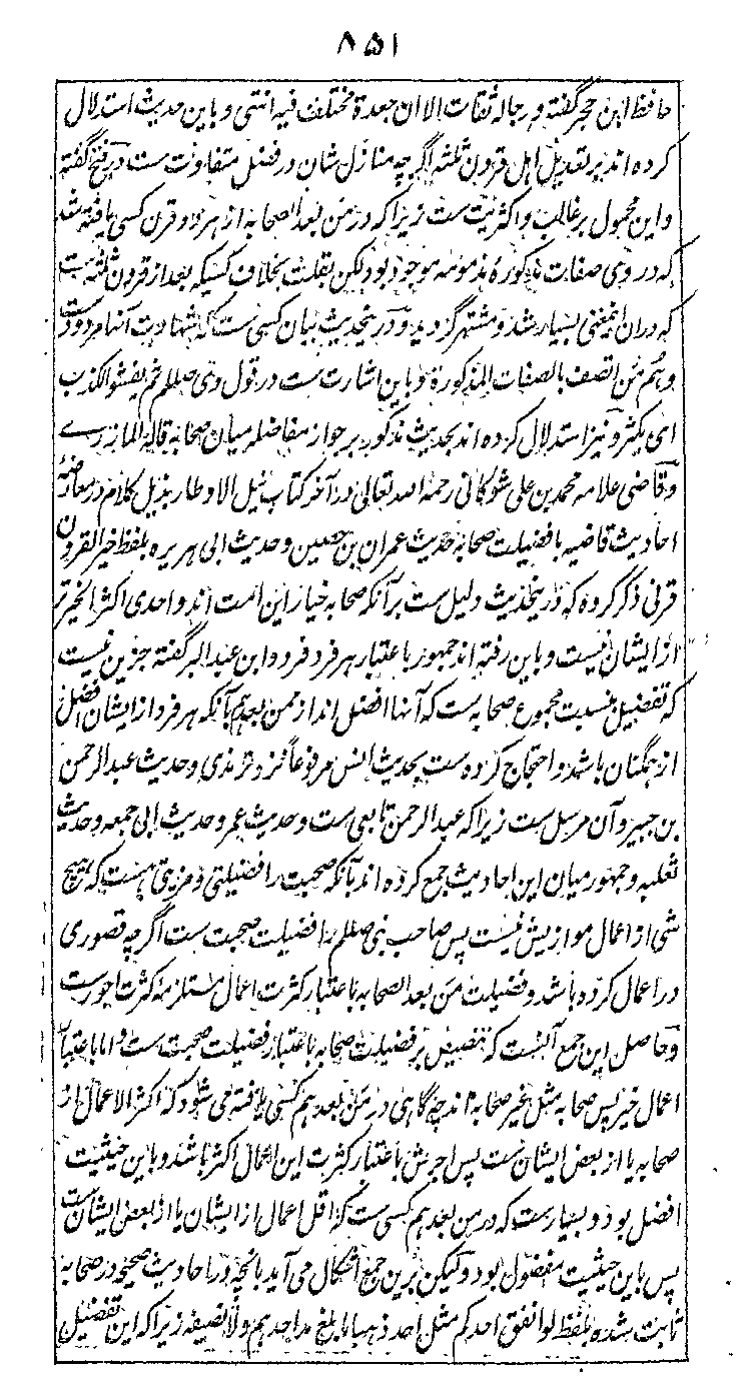 ۸۵۱
حافظ ابن حجر گفته و رجاله ثقات الا ان جعدة مختلف فیه انتهی و باین حدیث استدلال
کرده اند بر تعدیل اهل قرون ثلثه اگرچه منازل شان در فضل متفاوت ست در فتح گفته
و این محمول بر غالب و اکثریت ست زیرا که در من بعد الصحابه از هر دو قرن کسی یافته شد
که در وی صفات مذکورهٔ مذمومه موجود بود لیکن بقلت بخلاف کسیکه بعد از قرون ثلثه ست
که دران اینمعنی بسیار شد و مشتهر گردید و درینحدیث بیان کسی ست که شهادت آنها مردودست
وهم من اتصف بالصفات المذکورة و باین اشارت ست در قول وی صللم ثم یفشو الکذب
ای یکثر و نیز استدلال کرده اند بحدیث مذکور بر جواز مفاضله میان صحابه قاله المازری
و قاضی علامه محمد بن علی شوکانی رحمه الله تعالی در آخر کتاب نیل الاوطار بذیل کلام در معارضهٔ
احادیث قاضیه بافضیلت صحابه حدیث عمران بن حصین و حدیث ابی هریره بلفظ خیر القرون
قرنی ذکر کرده که درینحدیث دلیل ست بر آنکه صحابه خیار این امت اند و احدی اکثر الخیرتر
از ایشان نیست و باین رفته اند جمهور باعتبار هر فرد فرد و ابن عبد البر گفته جز این نیست
که تفضیل بنسبت مجموع صحابه ست که آنها افضل اند از ممن بعدهم نه آنکه هر فرد از ایشان افضل
از همگنان باشد و احتجاج کرده ست بحدیث انس مرفوعاً نزد ترمذی و حدیث عبد الرحمن
بن جبیر و آن مرسل ست زیرا که عبد الرحمن تابعی ست و حدیث عمر و حدیث ابی جمعه و حدیث
ثعلبه و جمهور میان این احادیث جمع کرده اند بآنکه صحبت را فضیلتی و مزیتی هست که هیچ
شی از اعمال موازیش نیست پس صاحب نبی صللم را فضیلت صحبت ست اگرچه قصوری
در اعمال کرده باشد و فضیلت من بعد الصحابه باعتبار کثرت اعمال مستلزمه کثرت اجورست
و حاصل این جمع آنست که تنصیص بر فضیلت صحابه باعتبار فضیلت صحبت ست و اما باعتبار
اعمال خیر پس صحابه مثل غیر صحابه اند چه گاهی در من بعدهم کسی یافته می شود که اکثر الاعمال از
صحابه یا از بعض ایشان ست پس اجرش باعتبار کثرت این اعمال اکثر باشد و باین حیثیت
افضل بود و بسیارست که در من بعدهم کسی ست که اقل اعمال از ایشان یا از بعض ایشان ست
پس باین حیثیت مفضول بود ولیکن برین جمع اشکال می آید بانچه در احادیث صحیحه در صحابه
ثابت شده بلفظ لو انفق احدکم مثل احد ذهبا ما بلغ مد احدهم ولا نصیفه زیرا که این تفضیل